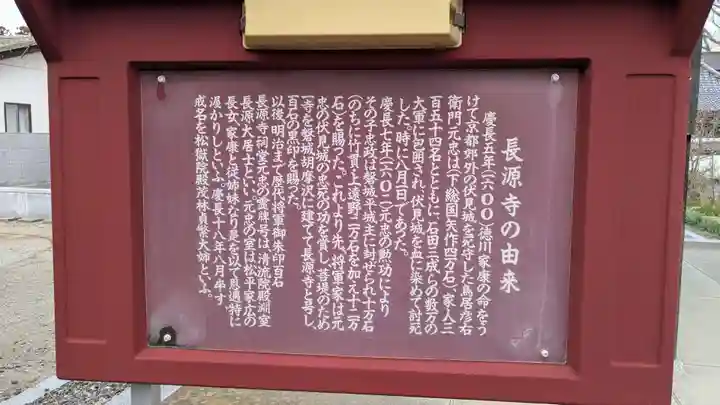 長源寺の由来
慶長五年(一六〇〇)徳川家康の命をう
けて京都郊外の伏見城を死守した鳥居彦右
衛門元忠は(下総国矢作四万石)、家人三
百五十四名とともに、石田三成らの数万の
大軍に包囲され、伏見城を血に染めて討死
した。時に八月一日であった。
慶長七年(一六〇二)元忠の勲功により
その子忠政は磐城平城主に封ぜられ十万石
(のちに竹貫・上遠野二万石を加え十二万
石)を賜った。これより先、将軍家は元
忠の伏見城の忠死の功を賞し、菩堤のため
一寺を磐城胡摩沢に建てて長源寺と号し、
百石の黒印を賜った。
以後明治まで歴代将軍御朱印百石
長源寺祠堂元忠の霊牌号は清流院殿淵室
長源大居士といい、元忠の室は松平家広の
長女、家康と従姉妹なり是を以て恩遇特に
渥かりしといふ。慶長十八年八月卒す、
戒名を松獄院殿茂林貞繁大姉といふ。